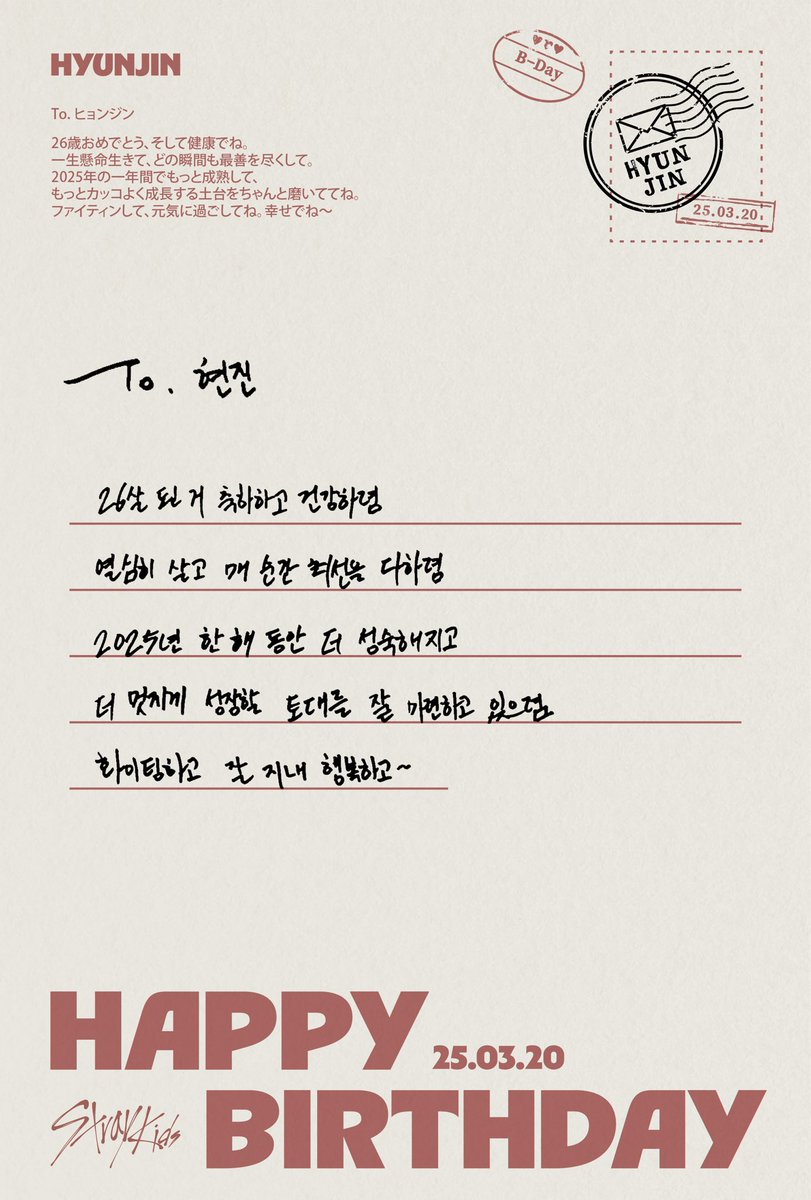 HYUNJIN
To. ヒョンジン
26歳おめでとう、そして健康でね。
一生懸命生きて、どの瞬間も最善を尽くして。
2025年の一年間でもっと成熟して、
もっとカッコよく成長する土台をちゃんと磨いててね。
ファイティンして、元気に過ごしてね。幸せでね〜
B-Day
HYUN
JIN
25.03.20
To. 현진
26살 된 거 축하하고 건강하렴
열심히 살고 매 순간 최선을 다하렴
2025년 한 해 동안 더 성숙해지고
더 멋지게 성장할 토대를 잘 마련하고 있으렴
화이팅하고 잘 지내 행복하고~
HAPPY
25.03.20
Stray Kids
BIRTHDAY